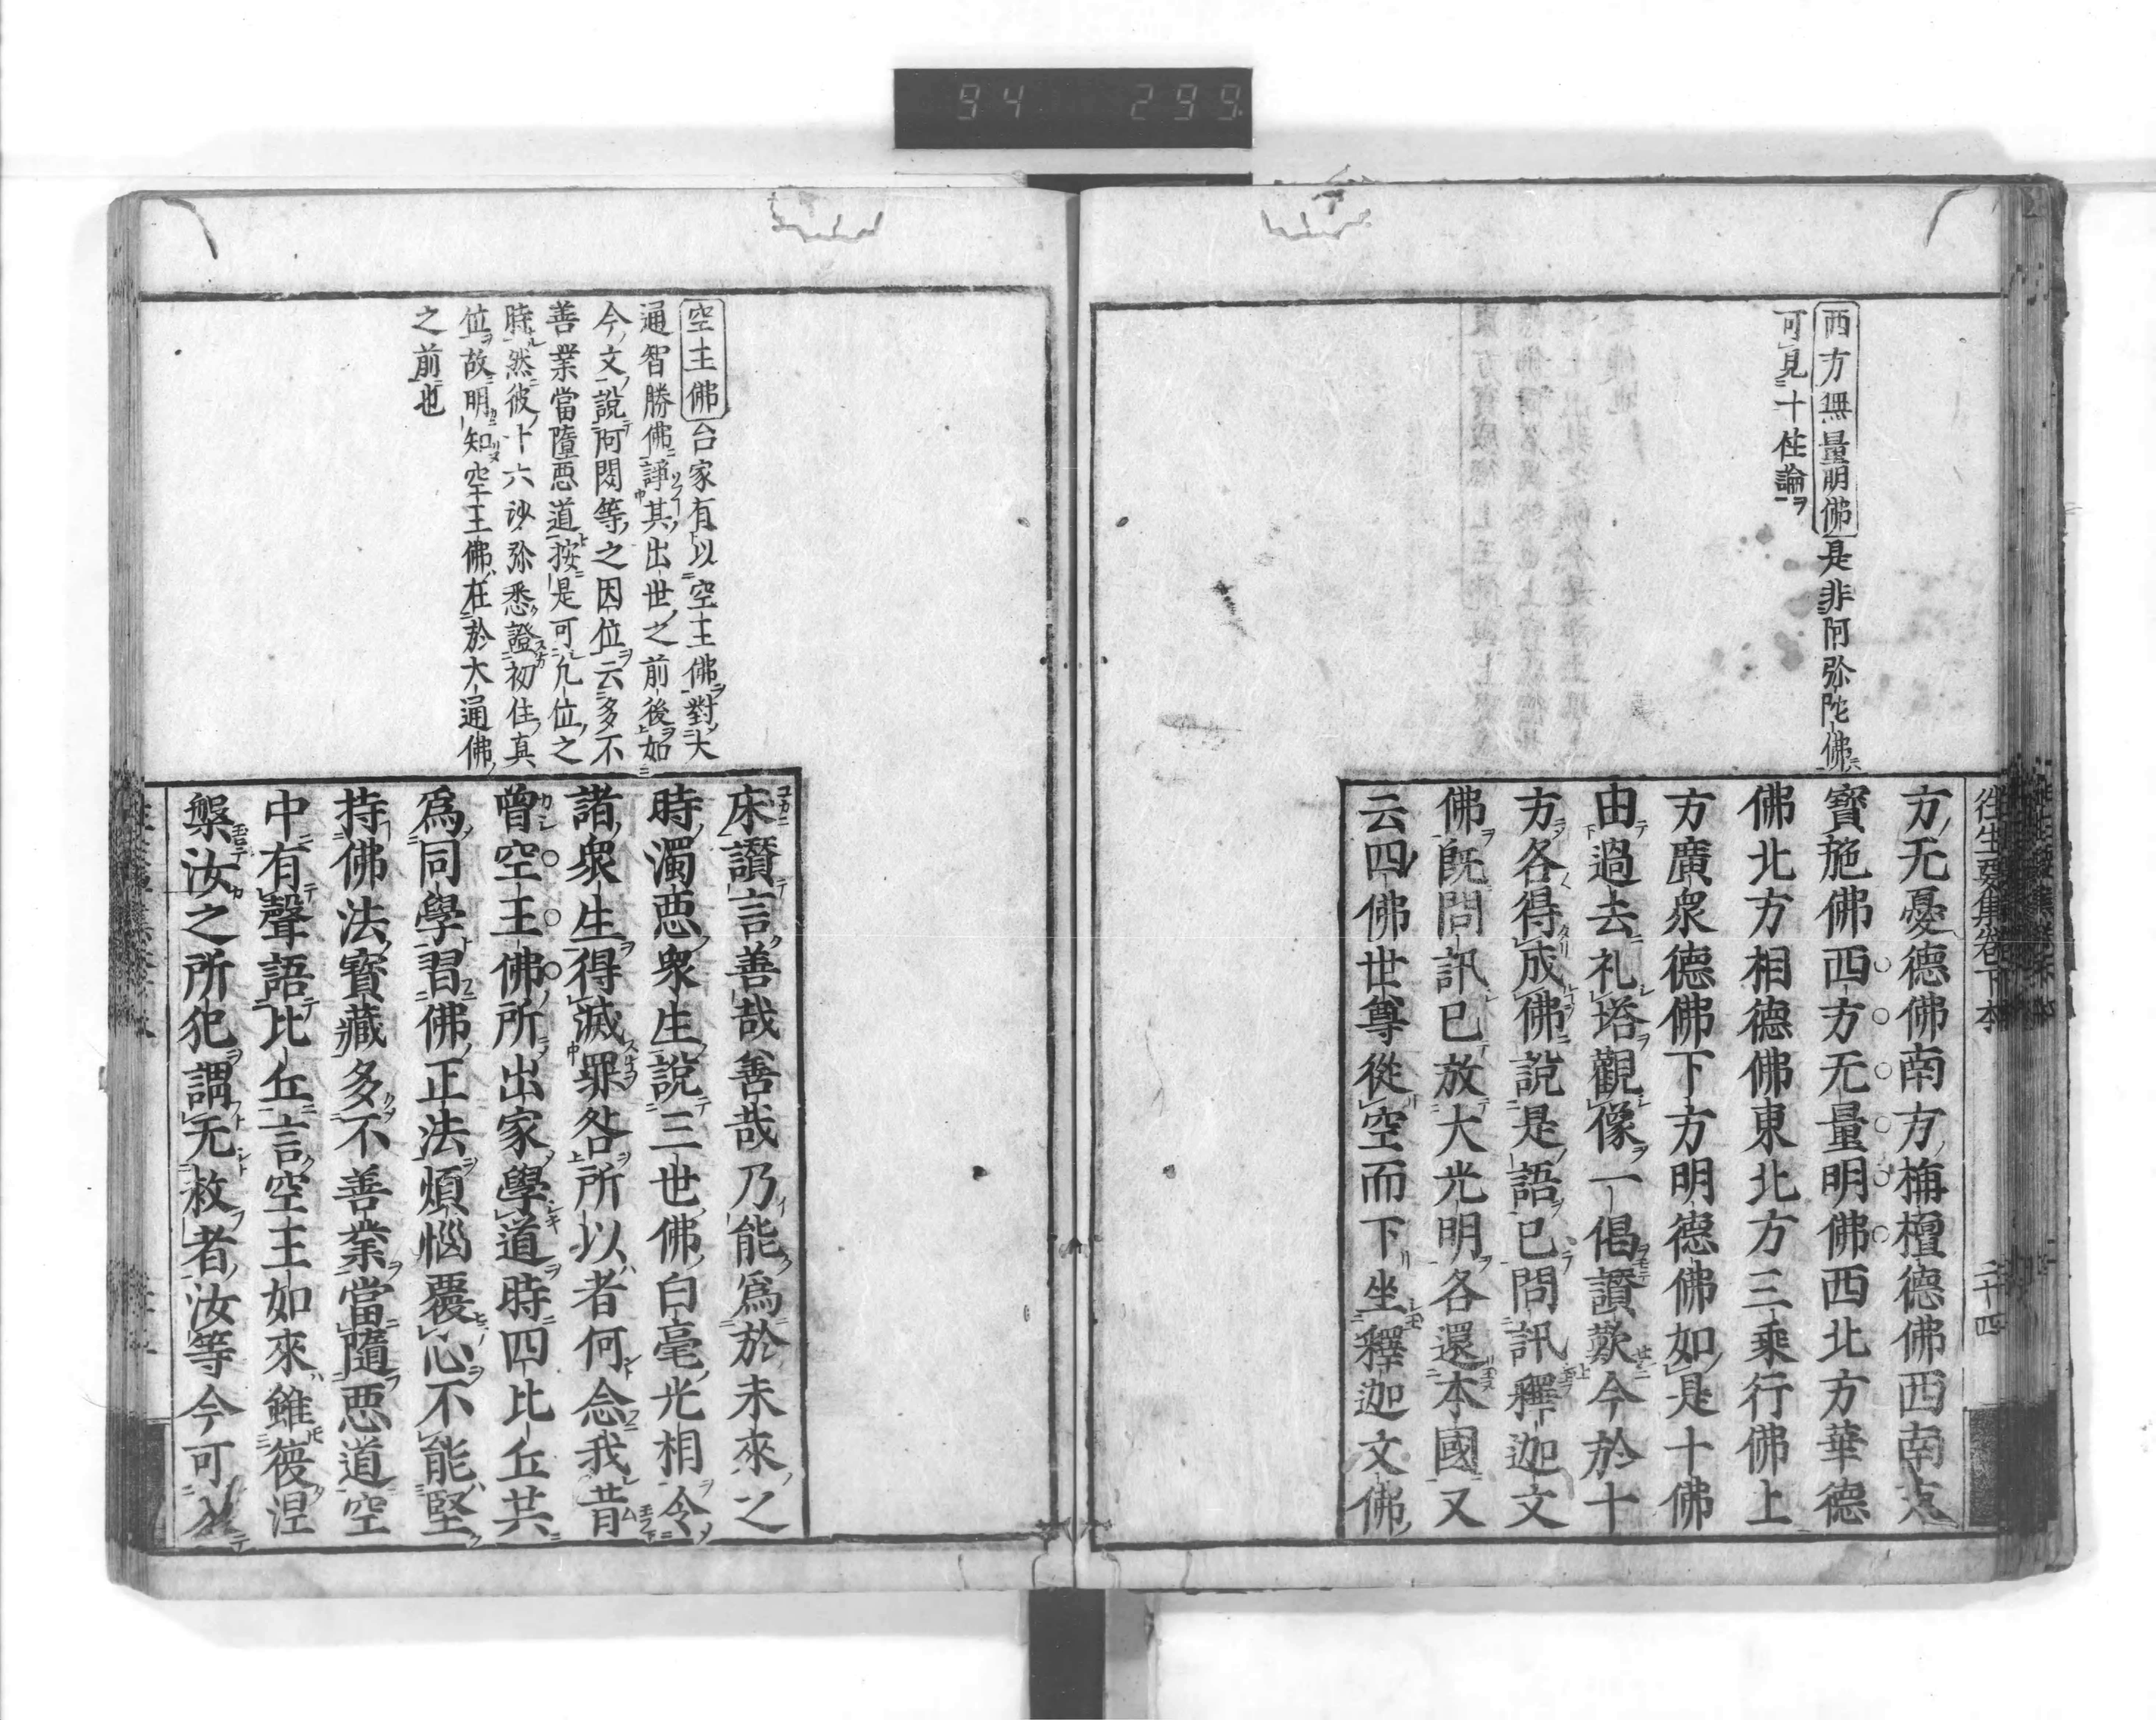 94 299
西方無量明佛是非阿弥陀佛
可見十住論
往生要集卷下本
二十四
方无憂德佛南方栴檀德佛西南方
寶施佛西方无量明佛西北方華德
佛北方相德佛東北方三乘行佛上
方廣衆德佛下方明德佛如是十佛
由過去礼塔觀像一偈讃歎今於十
方各得成佛說是語已問訊釋迦文
佛既問訊已放大光明各還本國又
云四佛世尊從空而下坐釋迦文佛
空王佛台家有以空王佛對大
通智勝佛諍其出世之前後如
今文說阿閦等之因位云多不
善業當墮悪道按是可凡位之
時然彼十六沙弥悉證初住真
位故明知空王佛在於大通佛
之前也
床讃言善哉善哉乃能爲於未來之
時濁悪衆生說三世佛白毫光相令
諸衆生得滅罪咎所以者何念我昔
曾空王佛所出家學道時四比丘共
爲同學習佛正法煩惱覆心不能堅
持佛法寶藏多不善業當隨悪道空
中有聲語比丘言空王如來雖復涅
槃汝之所犯謂无救者汝等今可入